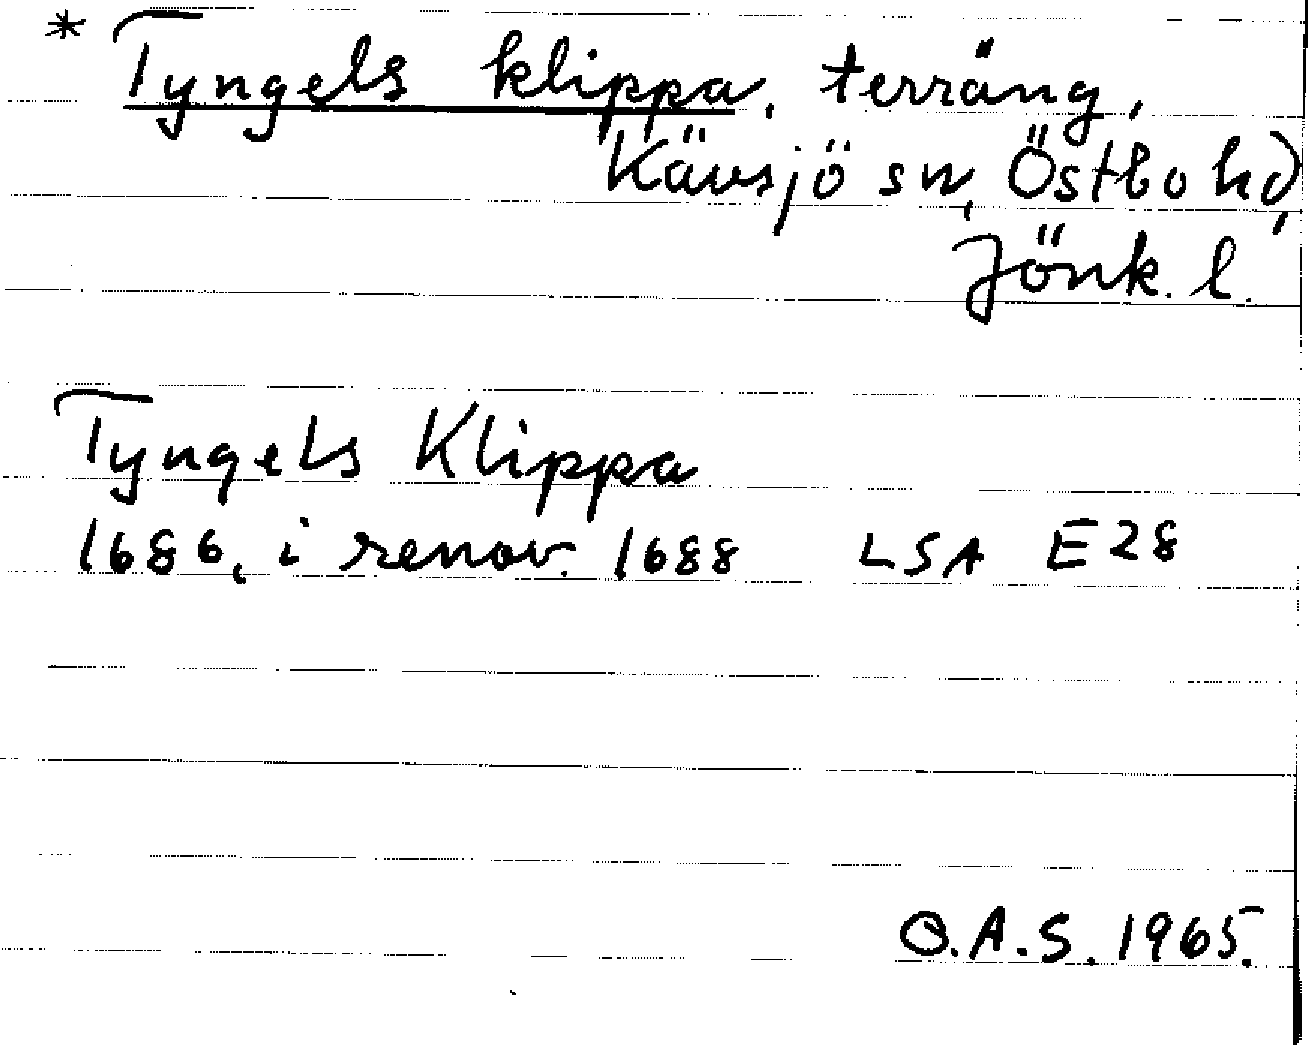 * Tyngels klippa, terräng,
Kävsjö sn, Östbo hd,
Jönk. l.
Tyngels Klippa
1686, i renov. 1688 LSA E28
O.A.S. 1965.